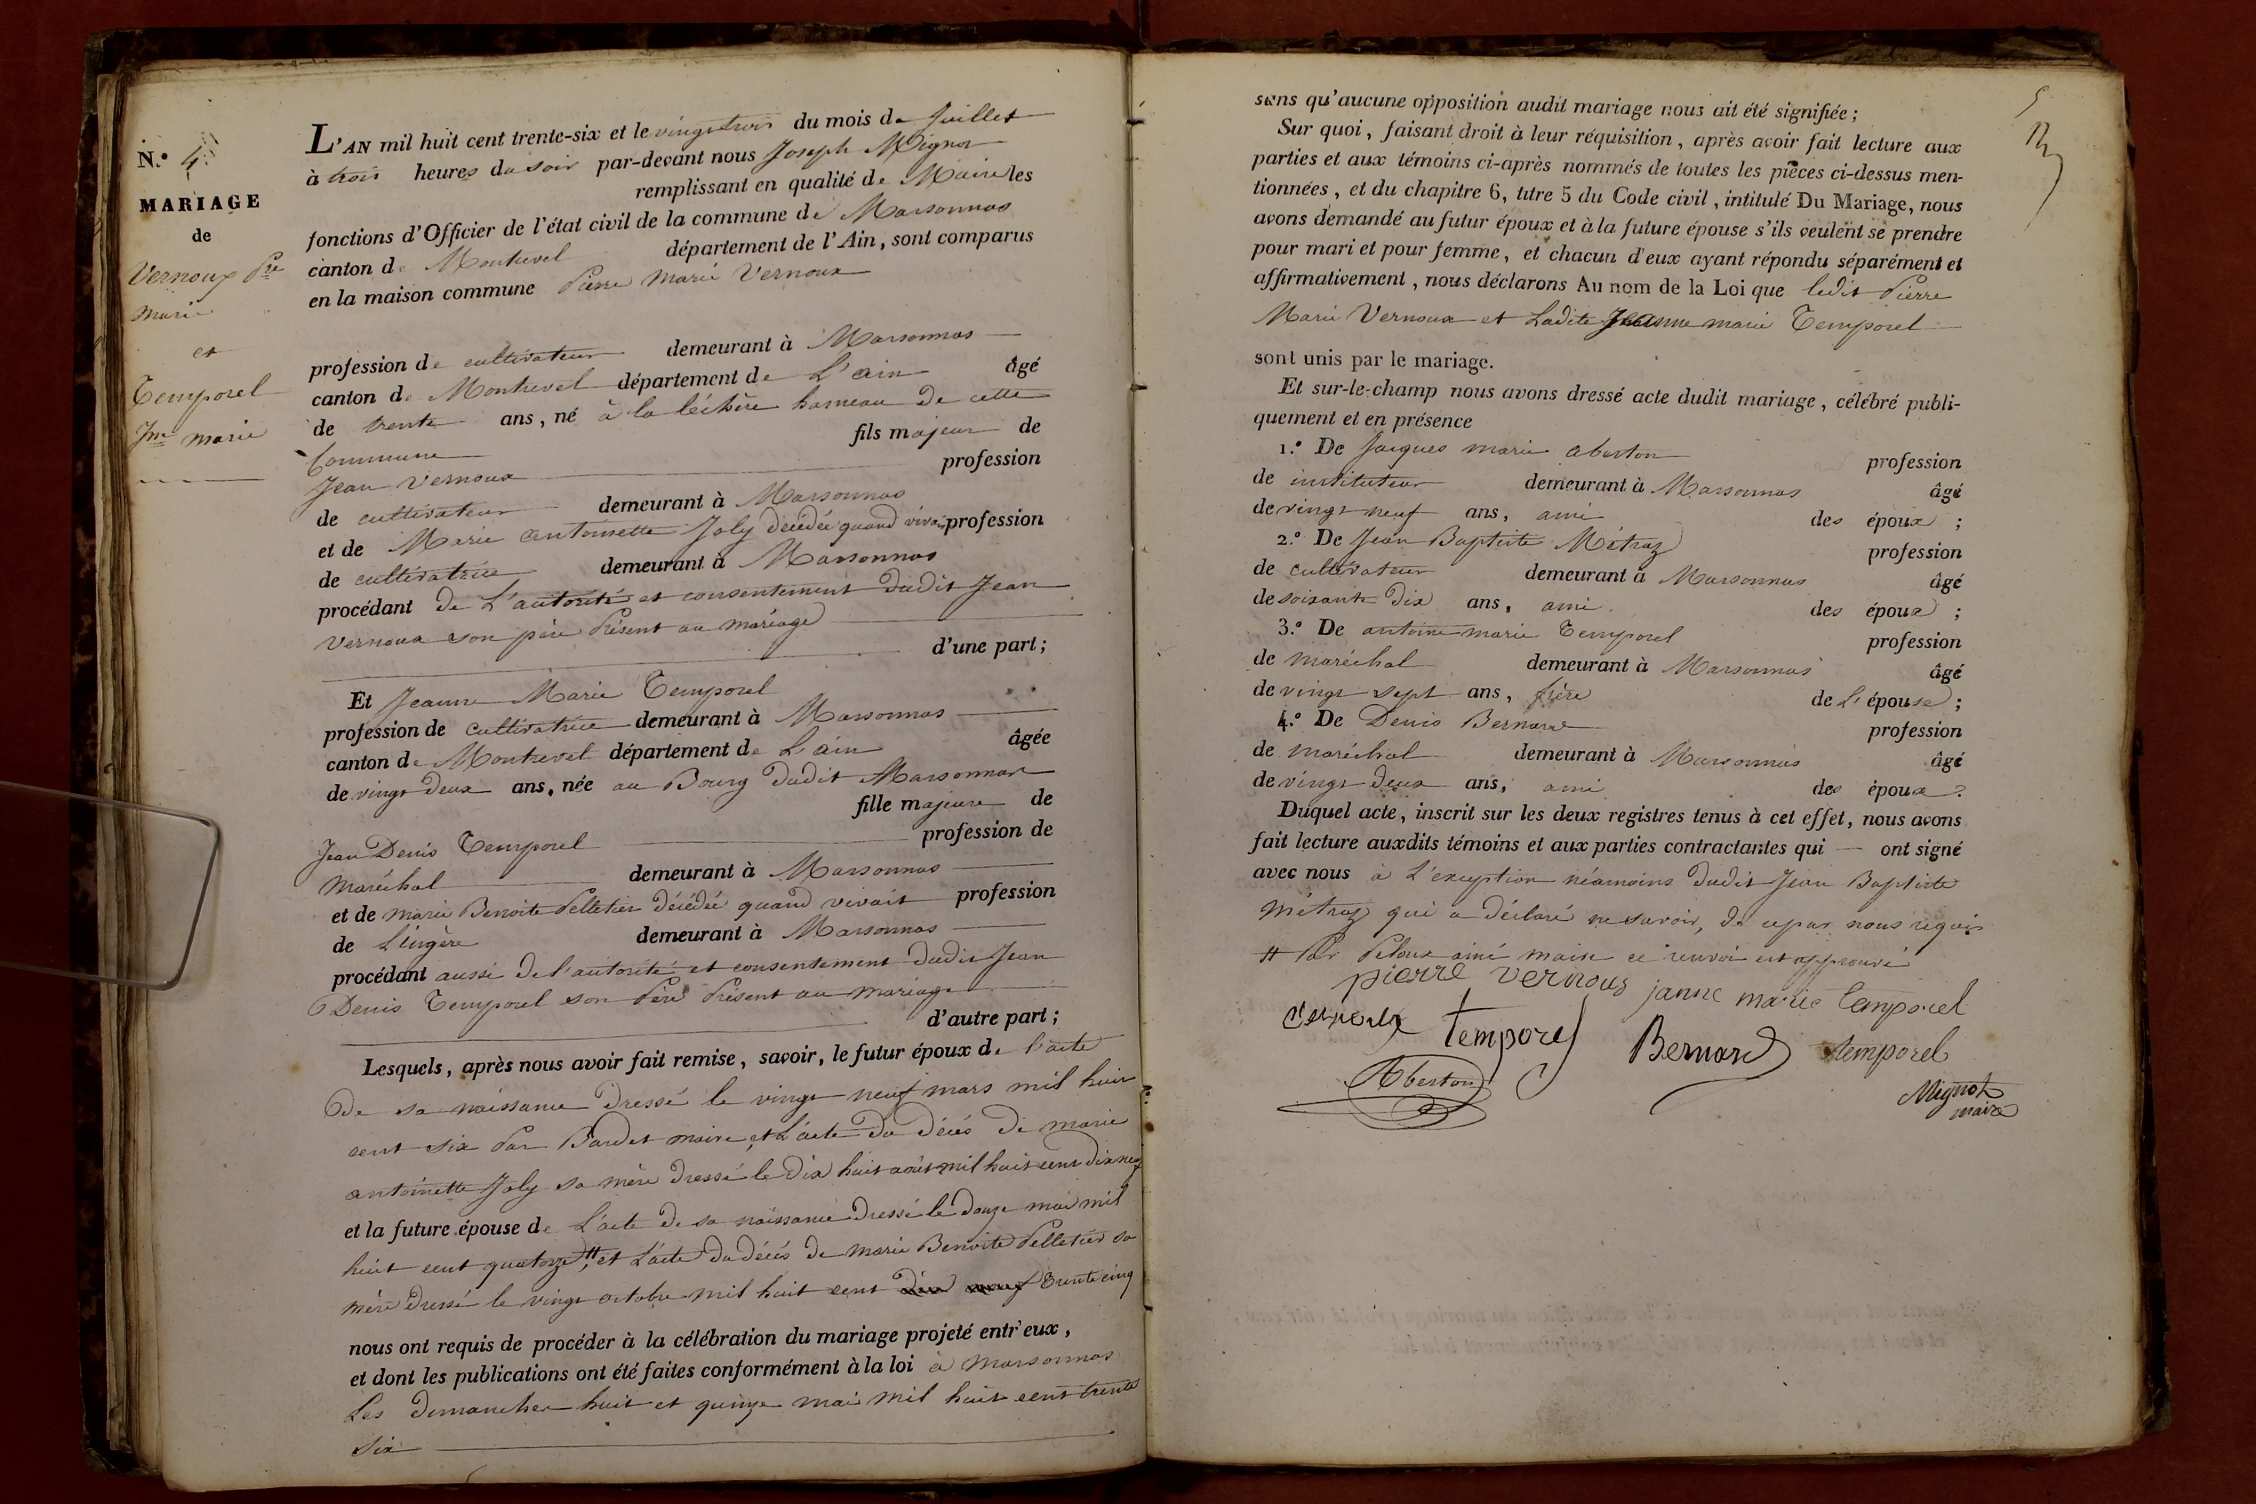 N.o 4.
MARIAGE
de
Vernoux Pre
marie
et
Temporel
Jne marie
L'AN mil huit cent trente-six et le vingt trois du mois de Juillet
à trois heures du soir par-devant nous Joseph Mignot
remplissant en qualité de Maire les
fonctions d'Officier de l'état civil de la commune de Marsonnas
canton de Montrevel département de l'Ain, sont comparus
en la maison commune Pierre Marie Vernoux
profession de cultivateur demeurant à Marsonnas
canton de Montrevel département de L'ain âgé
de trente ans, né à la léchère hameau de cette
Commune fils majeur de
Jean Vernoux profession
de cultivateur demeurant à Marsonnas
et de Marie antoinette Joly décédée quand vivait profession
de cultivatrice demeurant à Marsonnas
procédant de L'autorité et consentement dudit Jean
Vernoux son père Présent au mariage
d'une part;
Et Jeanne Marie Temporel
profession de cultivatrice demeurant à Marsonnas
canton de Montrevel département de L'ain âgée
de vingt deux ans, née au Bourg dudit Marsonnas
fille majeure de
Jean Denis Temporel profession de
Maréchal demeurant à Marsonnas
et de marie Benoite Pelletier décédée quand vivait profession
de Lingère demeurant à Marsonnas
procédant aussi de l'autorité et consentement dudit Jean
Denis Temporel son Père Présent au mariage
d'autre part;
Lesquels, après nous avoir fait remise, savoir, le futur époux de l'acte
de sa naissance dressé le vingt neuf mars mil huit
cent six Par Bardet maire, et L'acte du décès de marie
antoinette Joly sa mère dressé le dix huit août mil huit cent dix neuf
et la future épouse de L'acte de sa naissance dressé le douze mai mil
huit cent quatorze, # et L'acte du décès de marie Benoite Pelletier sa
mère dressé le vingt octobre mil huit cent dix neuf trente cinq
nous ont requis de procéder à la célébration du mariage projeté entr'eux,
et dont les publications ont été faites conformément à la loi à marsonnas
Les dimanches huit et quinze mai mil huit cent trente
six
sans qu'aucune opposition audit mariage nous ait été signifiée;
Sur quoi, faisant droit à leur réquisition, après avoir fait lecture aux
parties et aux témoins ci-après nommés de toutes les pièces ci-dessus men-
tionnées, et du chapitre 6, titre 5 du Code civil, intitulé Du Mariage, nous
avons demandé au futur époux et à la future épouse s'ils veulent se prendre
pour mari et pour femme, et chacun d'eux ayant répondu séparément et
affirmativement, nous déclarons Au nom de la Loi que ledit Pierre
Marie Vernoux et Ladite Jeanne marie Temporel
sont unis par le mariage.
Et sur-le-champ nous avons dressé acte dudit mariage, célébré publi-
quement et en présence
1.o De Jacques marie aberton profession
de instituteur demeurant à Marsonnas âgé
de vingt neuf ans, ami des époux;
2.o De Jean Baptiste Métraz profession
de cultivateur demeurant à Marsonnas âgé
de soixante dix ans, ami des époux;
3.o De antoine marie Temporel profession
de maréchal demeurant à Marsonnas âgé
de vingt sept ans, frère de L'épouse;
4.o De Denis Bernard profession
de maréchal demeurant à Marsonnas âgé
de vingt deux ans, ami des époux.
Duquel acte, inscrit sur les deux registres tenus à cet effet, nous avons
fait lecture auxdits témoins et aux parties contractantes qui ont signé
avec nous à L'exception néamoins dudit Jean Baptiste
Métraz qui a déclaré ne savoir, de ce par nous requis
# Par Peloux ainé maire ce renvoi est approuvé
pierre vernoux janne marie temporel
vernoux temporel Bernard temporel
Aberton
Mignot
maire